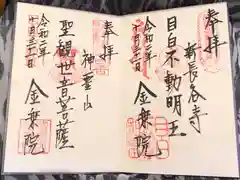 奉拝
新長谷寺
目白不動明王
令和二年
十月三十一日
金乗院
奉拝
神霊山
聖観世音菩薩
令和二年
十月三十一日
金乗院